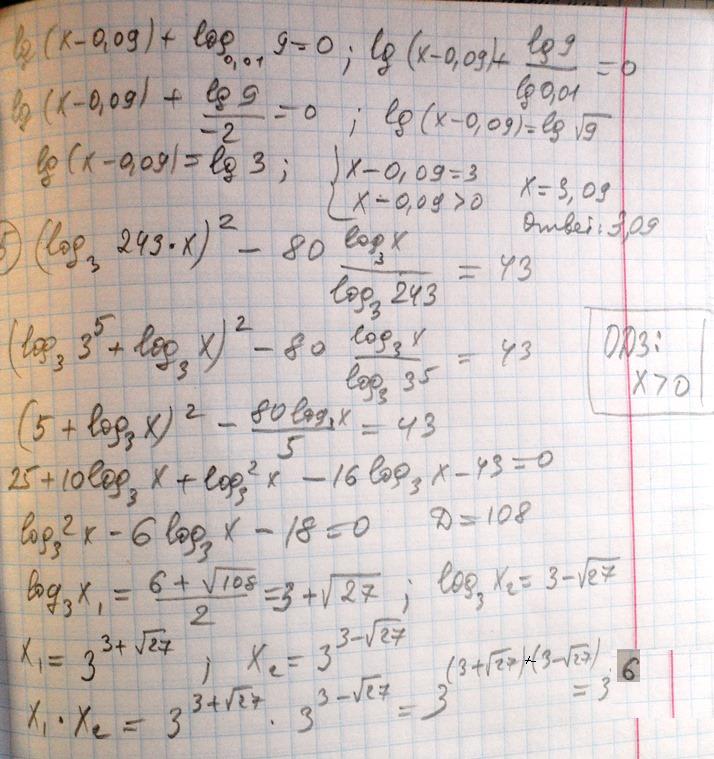 lg (x-0,09) + log₀,₀₁ 9 = 0 ; lg (x-0,09) + lg 9 / lg 0,01 = 0
lg (x-0,09) + lg 9 / -2 = 0 ; lg (x-0,09) = lg √9
lg (x-0,09) = lg 3 ; { x-0,09 = 3
x-0,09 > 0
x = 3,09
Ответ: 3,09
5) (log₃ 243·x)² - 80 log₃ x / log₃ 243 = 43
(log₃ 3⁵ + log₃ x)² - 80 log₃ x / log₃ 3⁵ = 43
ОДЗ:
x > 0
(5 + log₃ x)² - 80 log₃ x / 5 = 43
25 + 10 log₃ x + log₃² x - 16 log₃ x - 43 = 0
log₃² x - 6 log₃ x - 18 = 0 D = 108
log₃ x₁ = (6 + √108) / 2 = 3 + √27 ; log₃ x₂ = 3 - √27
x₁ = 3^(3+√27) ; x₂ = 3^(3-√27)
x₁ · x₂ = 3^(3+√27) · 3^(3-√27) = 3^((3+√27)+(3-√27)) = 3^6